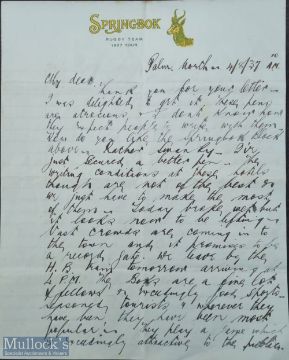 SPRINGBOK
RUGBY TEAM
1937 TOUR
Palm. North 4/8/37
My dear
Thank you for your letter
I was delighted to get it these pens
are atrocious & I don't know how
they expect people to write with them
How do you like the springbok back
above - Rather swanky - I've
just secured a better pen - The
writing conditions at these hotels
are not of the best so
we just have to make the most
of them - Today broke wet but
it looks now to be
Vast crowds are coming in to
the town and it promises to be
a record gate. We leave by the
H.B. tomorrow arriving at
4 P.M. The Boks are a fine lot
of fellows, exceedingly good sports,
seasoned tourists & wherever they
have been they have been most
popular. They play a game which
exceedingly attractive to the public
Mullock's
Specialist Auctioneers & Valuers